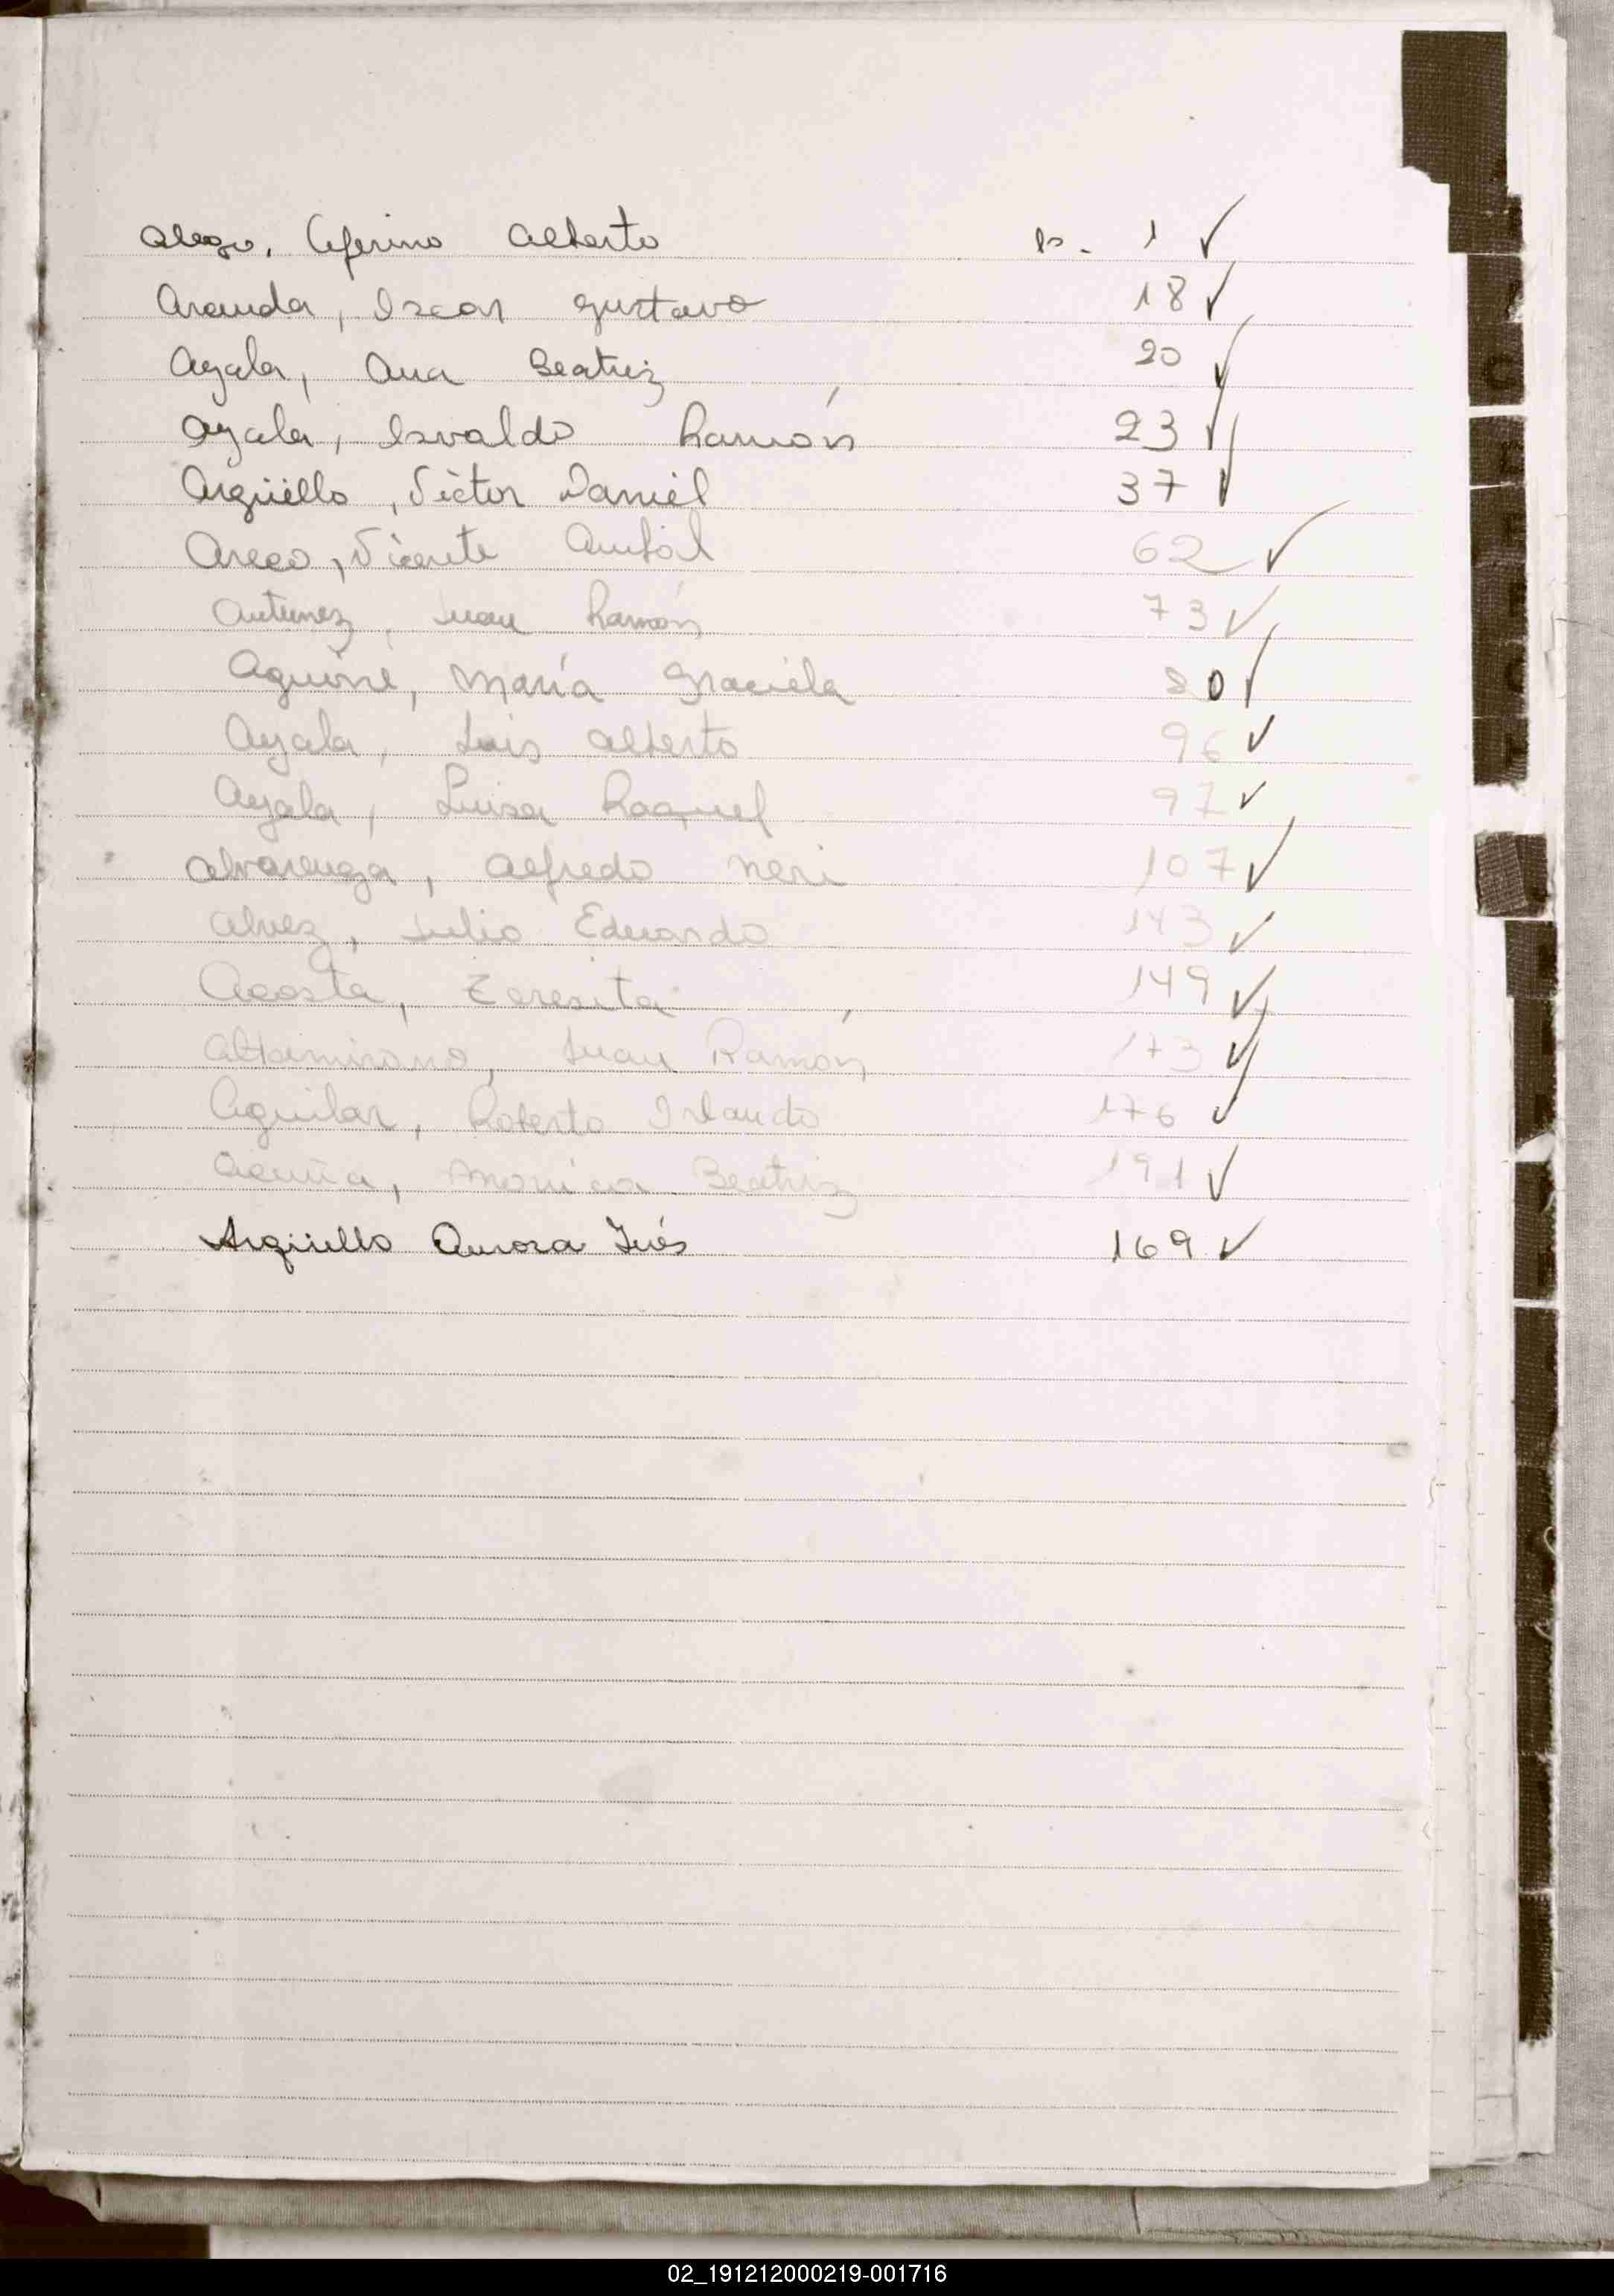 Alego, Ceferino Alberto 1 ✓
Aranda, Oscar Gustavo 18 ✓
Ayala, Ana Beatriz 20 ✓
Ayala, Osvaldo Ramón 23 ✓
Argüello, Victor Daniel 37 ✓
Areco, Vicente Anibal 62 ✓
Antunez, Juan Ramón 73 ✓
Aguirre, María Graciela 80 ✓
Ayala, Luis Alberto 96 ✓
Ayala, Luisa Raquel 97 ✓
Alvarenga, Alfredo Neri 107 ✓
Alvez, Julio Eduardo 143 ✓
Acosta, Teresita 149 ✓
Altamirano, Juan Ramón 173 ✓
Aguilar, Roberto Orlando 176 ✓
Acuña, Monica Beatriz 191 ✓
Argüello Aurora Inés 169 ✓
02_191212000219-001716